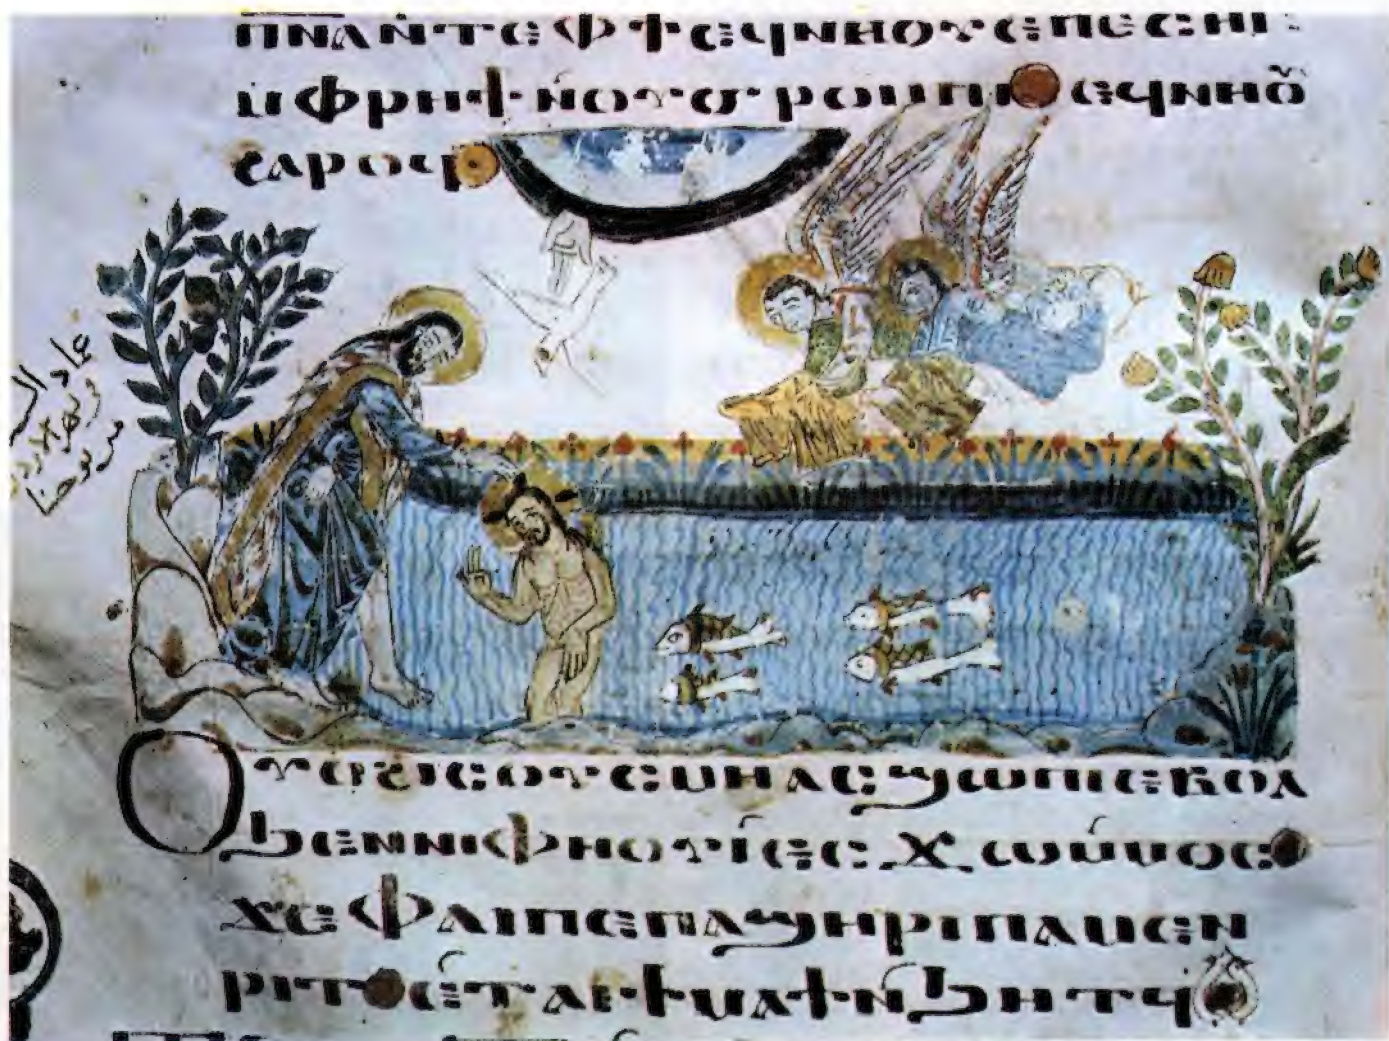 ⲡⲛⲁ ⲛ̀ⲧⲉ ⲫϯ ⲉϥⲛⲏⲟⲩ ⲉⲡⲉⲥⲏⲧ
ⲙ̀ⲫⲣⲏϯ ⲛ̀ⲟⲩϭⲣⲟⲙⲡⲓ ⲉϥⲛⲏⲟⲩ
ⲉⲁⲣⲟϥ
ⲟⲩⲟϩ ⲓⲥ ⲟⲩⲥⲙⲏ ⲁⲥϣⲱⲡⲓ ⲉⲃⲟⲗ
ϧⲉⲛ ⲛⲓⲫⲏⲟⲩⲓ̀ ⲉⲥϫⲱ ⲙ̀ⲙⲟⲥ
ϫⲉ ⲫⲁⲓ ⲡⲉ ⲡⲁϣⲏⲣⲓ ⲡⲁⲙⲉⲛ
ⲣⲓⲧ ⲉ̀ⲧⲁⲓϯⲙⲁϯ ⲛ̀ϧⲏⲧϥ